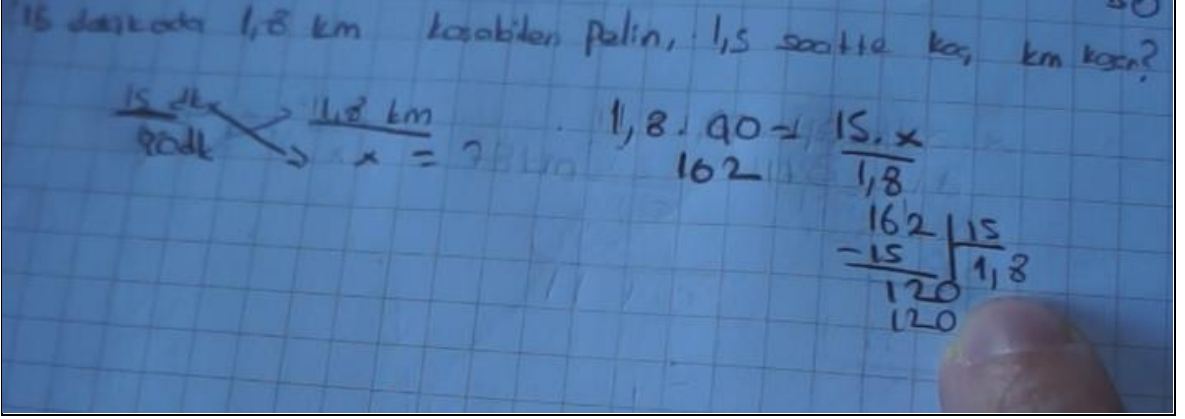 15 dakikada 1,8 km koşabilen Pelin, 1,5 saatte kaç km koşar?
15 dk 1,8 km
90dk x = ?
1,8 . 90 = 15.x
162 1,8
162 15
-15 1,8
120
120